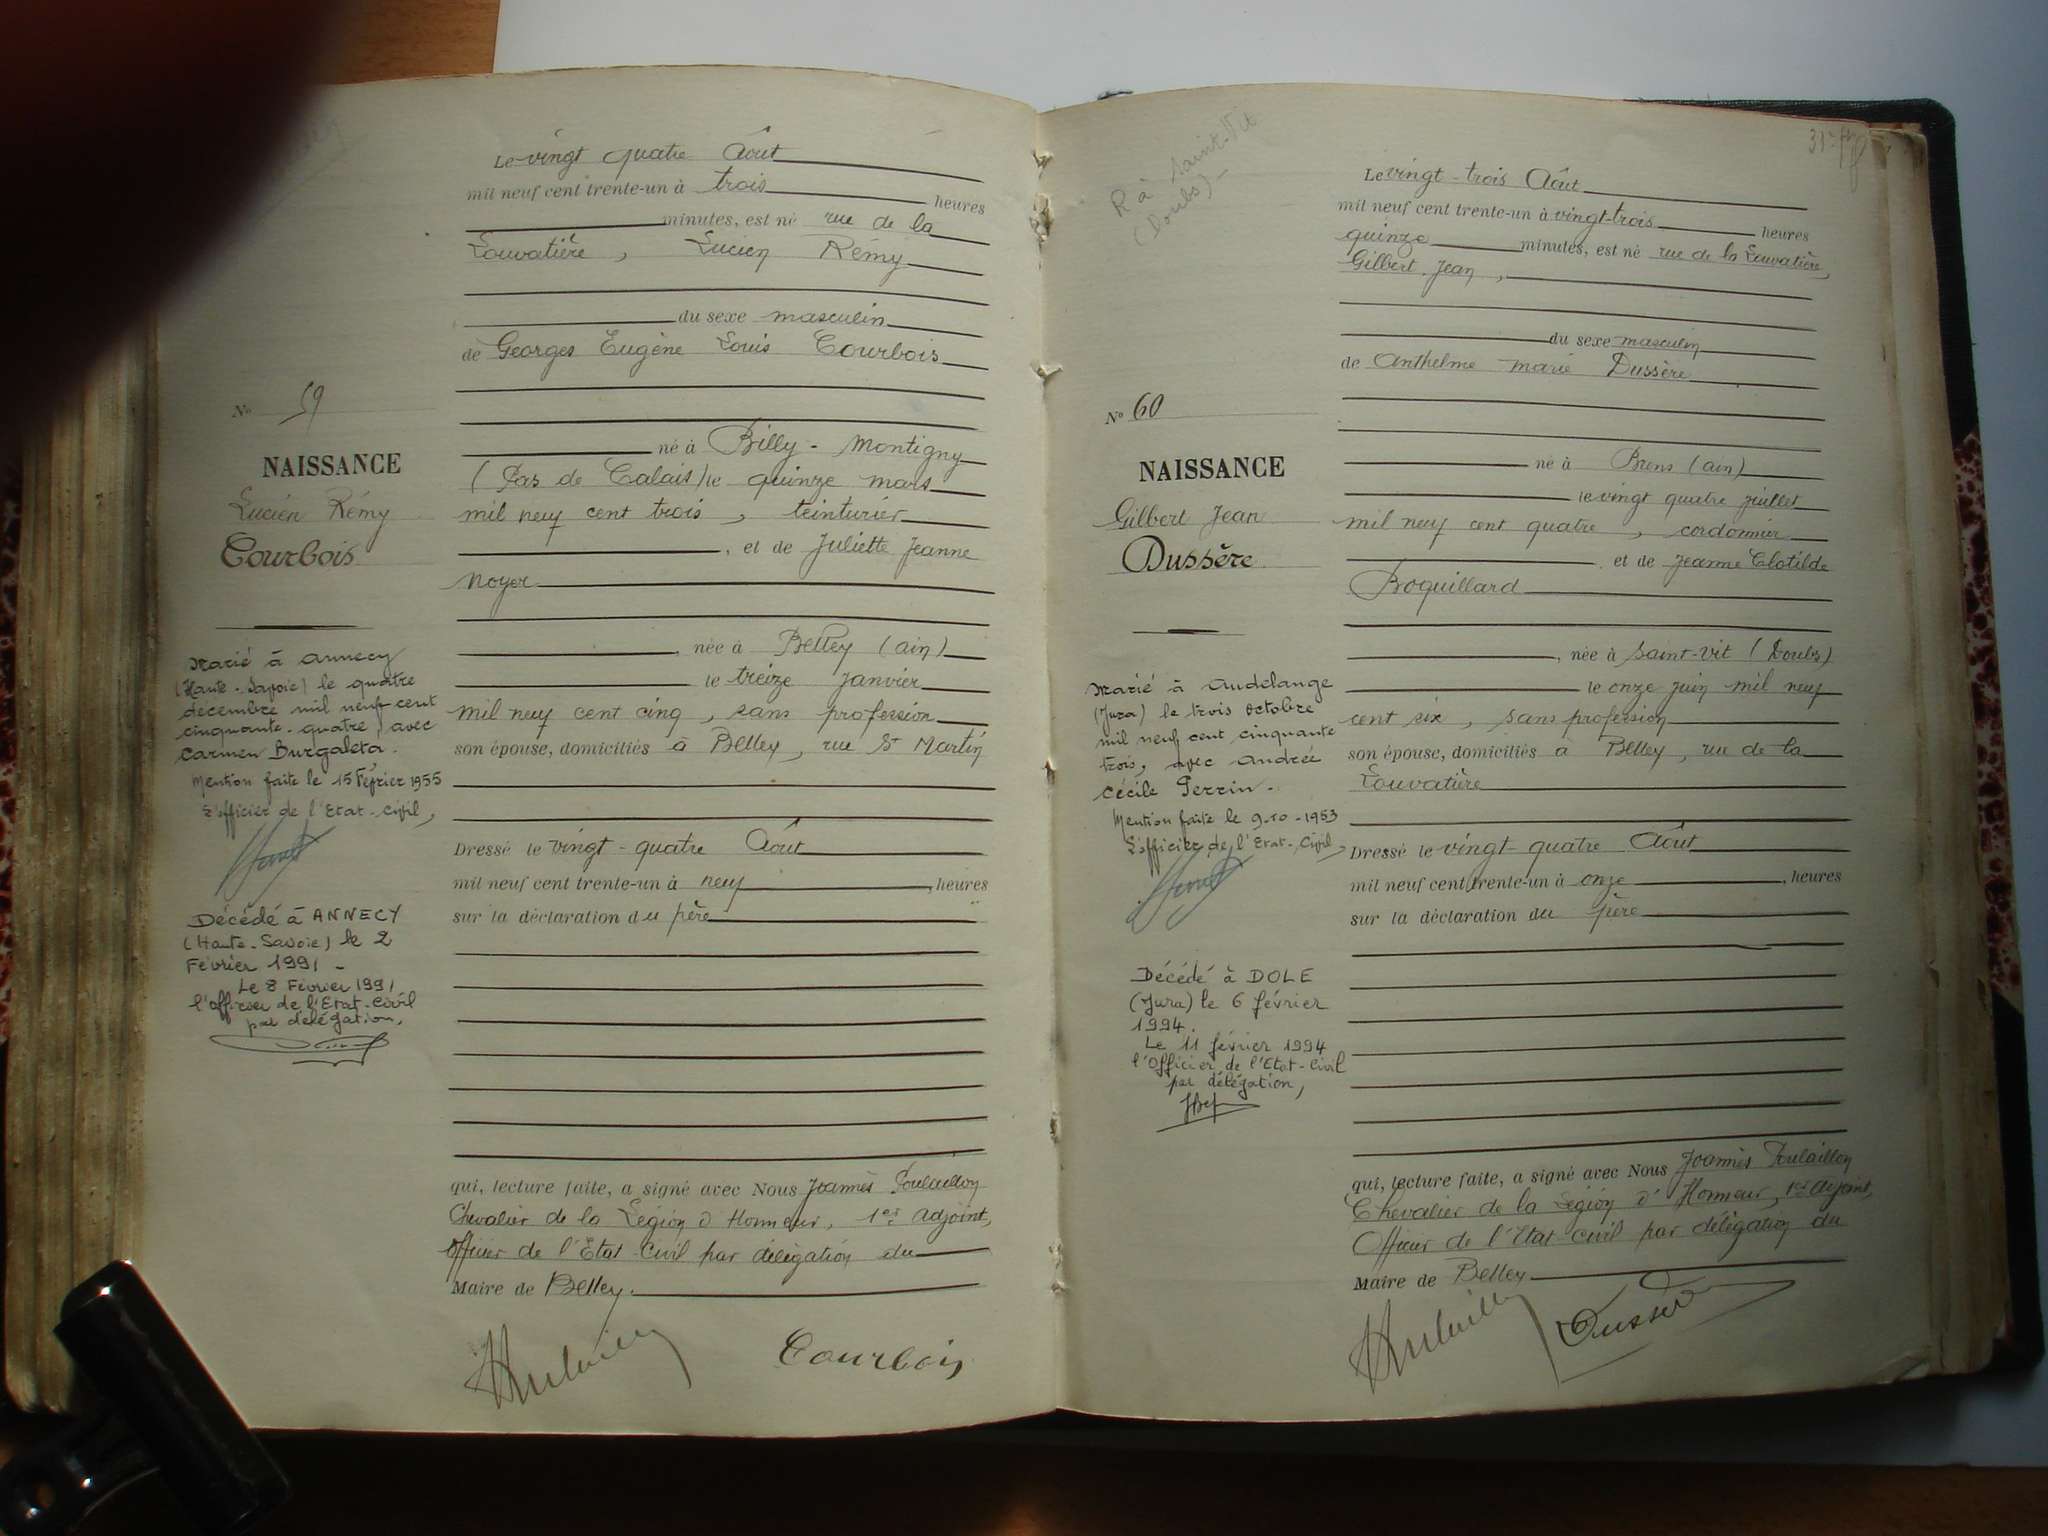 Le vingt quatre Août
mil neuf cent trente-un à trois heures
minutes, est né rue de la
Louvatière, Lucien Rémy
du sexe masculin
de Georges Eugène Louis Courbois
né à Billy-Montigny
(Pas de Calais) le quinze mars
mil neuf cent trois, teinturier
, et de Juliette Jeanne
Noyer
, née à Belley (ain)
le treize janvier
mil neuf cent cinq, sans profession
son épouse, domiciliés à Belley, rue St Martin
Dressé le vingt-quatre Août
mil neuf cent trente-un à neuf, heures
sur la déclaration du père
qui, lecture faite, a signé avec Nous Joannès Poulaillon
Chevalier de la Légion d'Honneur, 1er adjoint,
Officier de l'Etat-Civil par délégation du
Maire de Belley.
Courbois
No 59
NAISSANCE
Lucien Rémy
Courbois
Marié à Annecy
(Haute-Savoie) le quatre
décembre mil neuf cent
cinquante-quatre, avec
Carmen Burgaleta.
Mention faite le 15 Février 1955
L'officier de l'Etat-Civil,
Décédé à ANNECY
(Haute-Savoie) le 2
Février 1991 -
Le 8 Février 1991
l'officier de l'Etat-Civil
par délégation,
R à Saint-Vit
(Doubs) -
Le vingt-trois Août
mil neuf cent trente-un à vingt-trois heures
quinze minutes, est né rue de la Louvatière,
Gilbert Jean,
du sexe masculin
de Anthelme Marie Dussère
né à Brens (ain)
le vingt quatre juillet
mil neuf cent quatre, cordonnier
. et de Jeanne Clotilde
Boquillard
, née à Saint-Vit (Doubs)
le onze juin mil neuf
cent six, sans profession
son épouse, domiciliés à Belley, rue de la
Louvatière
Dressé le vingt-quatre Août
mil neuf cent trente-un à onze, heures
sur la déclaration du père
qui, lecture faite, a signé avec Nous Joannès Poulaillon
Chevalier de la Légion d'Honneur, 1er adjoint,
Officier de l'Etat-Civil par délégation du
Maire de Belley
Dussère
No 60
NAISSANCE
Gilbert Jean
Dussère
Marié à Audelange
(Jura) le trois octobre
mil neuf cent cinquante
trois, avec Andrée
Cécile Perrin.
Mention faite le 9-10-1953
L'officier de l'Etat-Civil,
Décédé à DOLE
(Jura) le 6 février
1994.
Le 11 février 1994
l'Officier de l'Etat-Civil
par délégation,